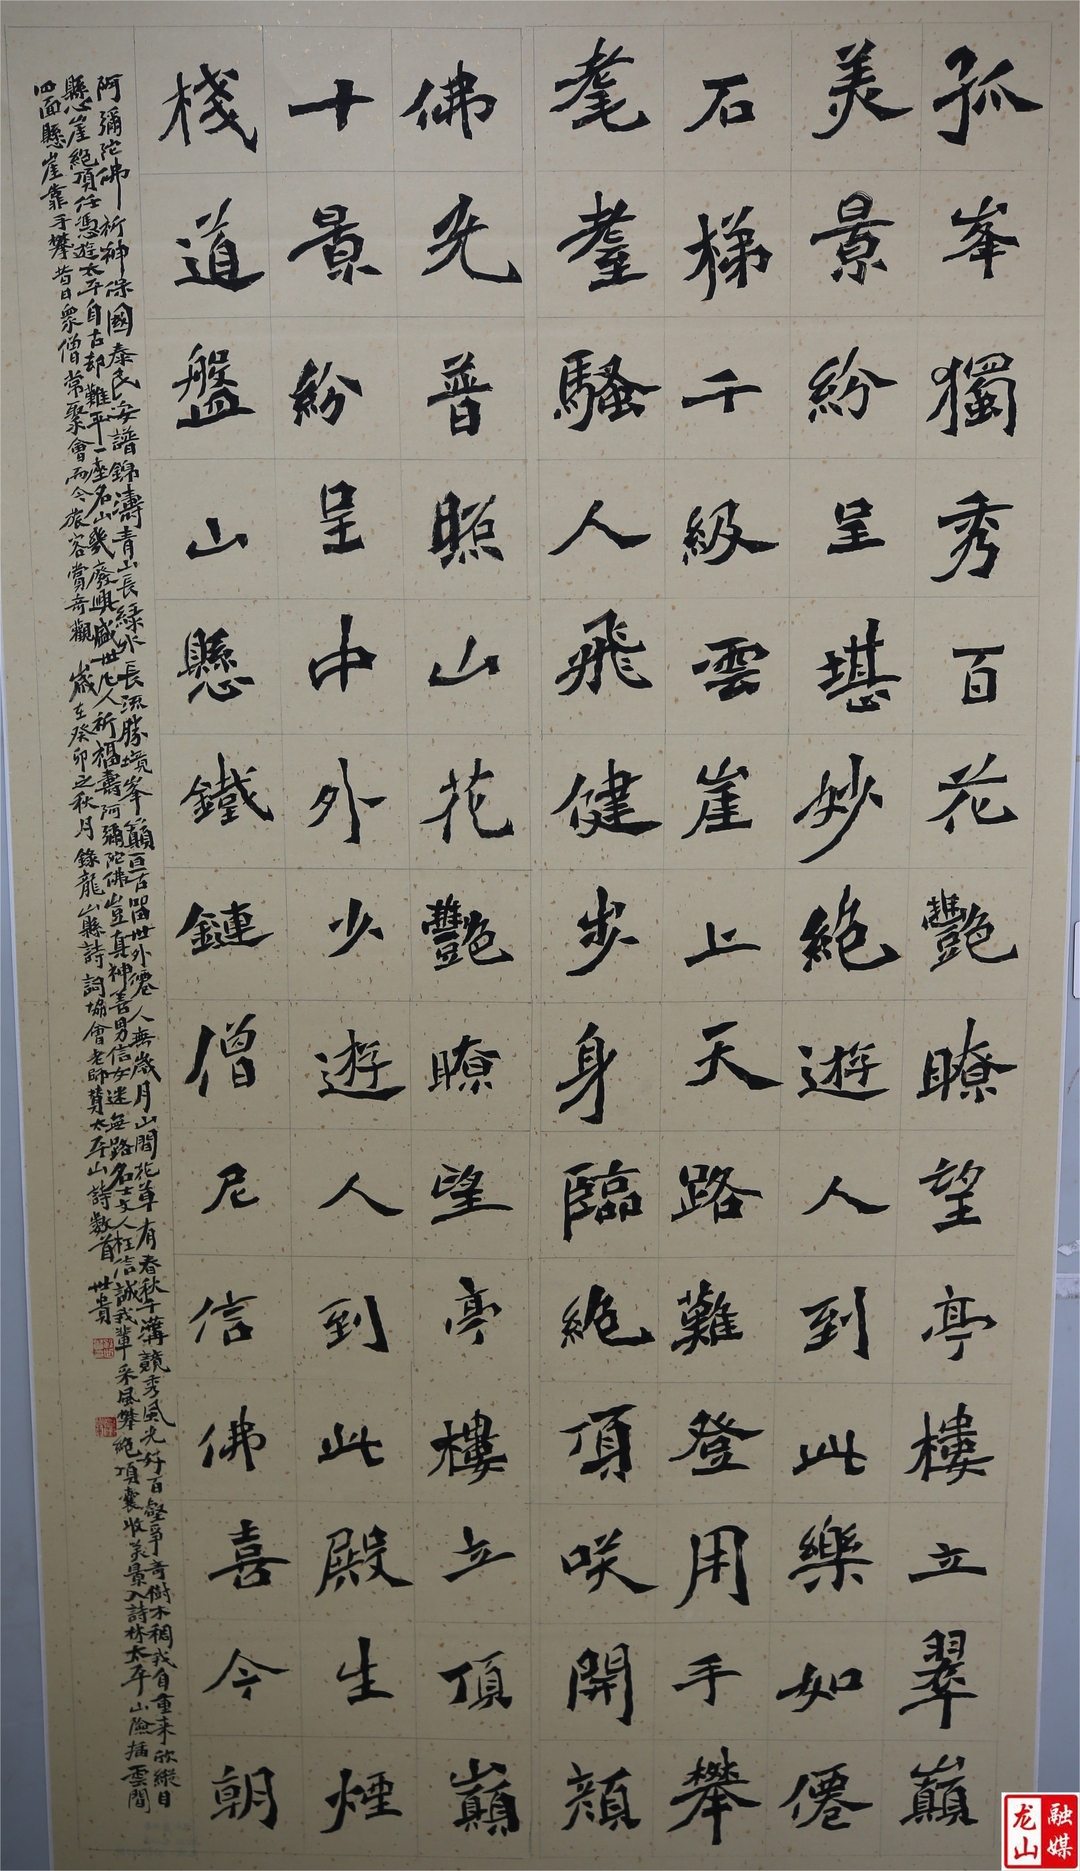 孤峯獨秀百花艷瞭望亭樓立翠巔
美景紛呈堪妙絕遊人到此樂如僊
石梯千級雲崖上天路難登用手攀
耄耋騷人飛健步身臨絕頂咲開顏
佛光普照山花艷瞭望亭樓立頂巔
十景紛呈中外少遊人到此殿生煙
棧道盤山懸鐵鏈僧尼信佛喜今朝
阿彌陀佛祈神保國泰民安譜錦濤青山長綠水長流勝境峯巔亘古留世外僊人無歲月山間花草有春秋千溝競秀風光好百壑爭奇樹木稠我自重來欣縱目
懸崖絕頂任憑遊太平自古却難平一座名山幾廢興盛世凡人祈福壽阿彌陀佛豈真神善男信女迷無路名士文人枉信誠我輩采風攀絕頂囊收美景入詩林太平山險插雲間
四面懸崖靠手攀昔日眾僧常聚會而今旅客賞奇觀歲在癸卯之秋月錄龍山縣詩詞協會老師贊太平山詩數首世貴
龙山融媒